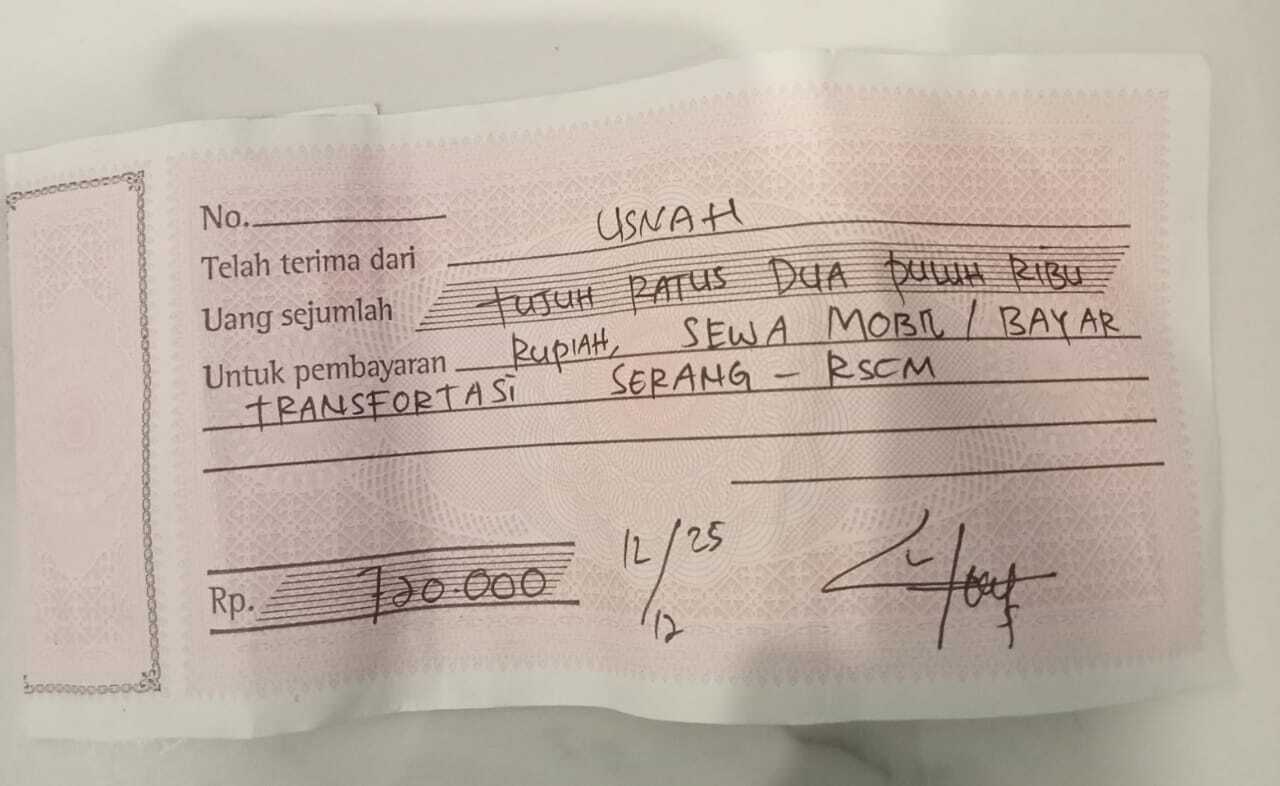 No.
Telah terima dari USNAH
Uang sejumlah TUJUH RATUS DUA PULUH RIBU
Untuk pembayaran RUPIAH, SEWA MOBIL / BAYAR
TRANSFORTASI SERANG - RSCM
Rp. 720.000
12/12 25